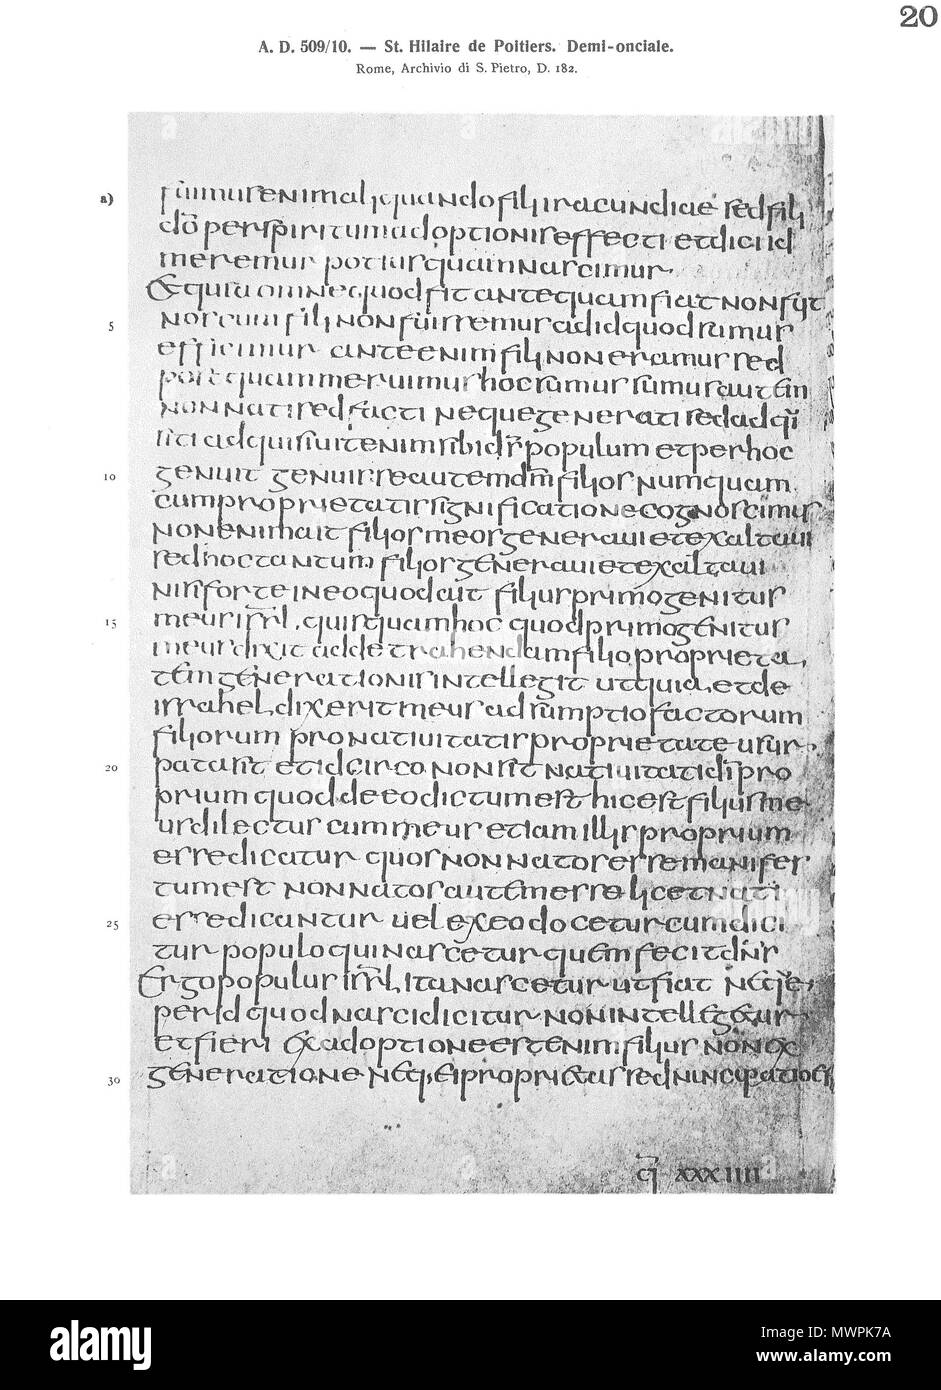 20
A. D. 509/10. — St. Hilaire de Poitiers. Demi-onciale.
Rome, Archivio di S. Pietro, D. 182.
a)
fuimus enim aliquando filii iracundiae sed filii
dō per spiritum adoptionis effecti et dici id
meremur potius quam nascimur
et quia omne quod fit antequam fiat non fuit
5
nos cum filii non fuissemus ad id quod sumus
efficimur ante enim filii non eramus sed
postquam meruimus hoc sumus sumus autem
non nati sed facti neque generati sed adqui
siti adquisiuit enim sibi dn̄s populum et per hoc
10
genuit genuisse autem dn̄m filios numquam
cum proprietatis significatione cognoscimus
non enim ait filios meos generaui et exaltaui
sed hoc tantum filios generaui et exaltaui
nisi forte in eo quod ait filius primogenitus
15
meus isrl̄ quisquam hoc quod primogenitus
meus dixit ad detrahendam filio proprieta
tem generationis intellegit ut quia et de
israhel dixerit meus adsumptio factorum
filiorum pro natiuitatis proprietate usur
20
pata sit et idcirco non sit natiuitati dī pro
prium quod de eo dictum est hic est filius me
us dilectus cum meus etiam illis proprium
esse dicatur quos non natos esse manifes
tum est non natos autem esse licet nati
25
esse dicantur uel ex eo docetur cum dici
tur populo qui nascetur quem fecit dn̄s
Ergo populus isrl̄ ita nascetur ut fiat neq·
per id quod nasci dicitur non intellegetur
et fieri ex adoptione est enim filius non ex
30
generatione neq· ei proprietas sed nuncupatio est
q̄ XXXIIII
alamy
Image ID: MWPK7A
www.alamy.com